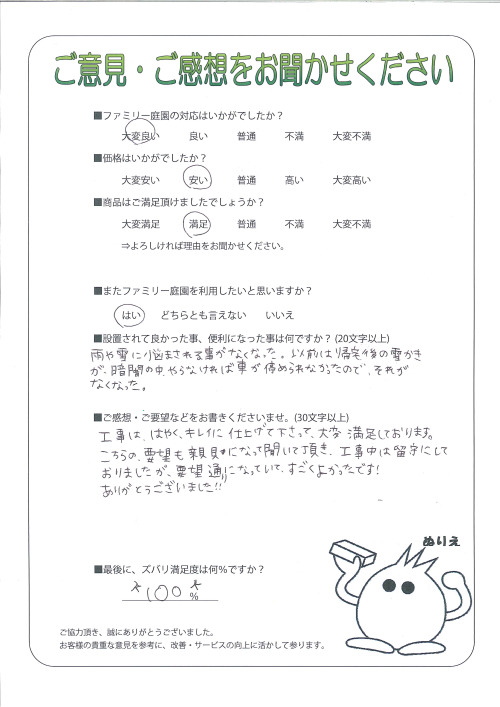 ご意見・ご感想をお聞かせください
■ファミリー庭園の対応はいかがでしたか？
大変良い　良い　普通　不満　大変不満
■価格はいかがでしたか？
大変安い　安い　普通　高い　大変高い
■商品はご満足頂けましたでしょうか？
大変満足　満足　普通　不満　大変不満
⇒よろしければ理由をお聞かせください。
■またファミリー庭園を利用したいと思いますか？
はい　どちらとも言えない　いいえ
■設置されて良かった事、便利になった事は何ですか？(20文字以上)
雨や雪に悩まされる事がなくなった。以前は帰宅後の雪かき
が、暗闇の中、やらなければ車が停められなかったので、それが
なくなった。
■ご感想・ご要望などをお書きくださいませ。(30文字以上)
工事は、はやく、キレイに仕上げて下さって、大変満足しております。
こちらの、要望も親身になって聞いて頂き、工事中は留守にして
おりましたが、要望通りになっていて、すごくよかったです!
ありがとうございました!!
ぬりえ
■最後に、ズバリ満足度は何％ですか？
100
％
ご協力頂き、誠にありがとうございました。
お客様の貴重な意見を参考に、改善・サービスの向上に活かして参ります。